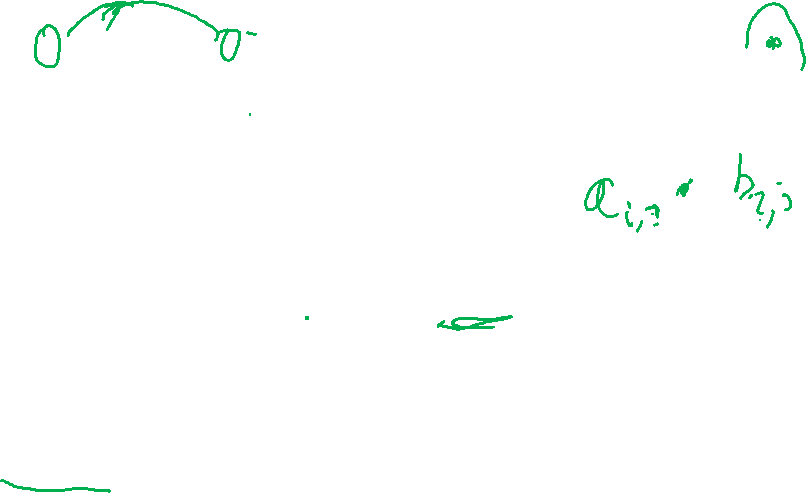 0 0
a_{i,?} · b_{?,j}